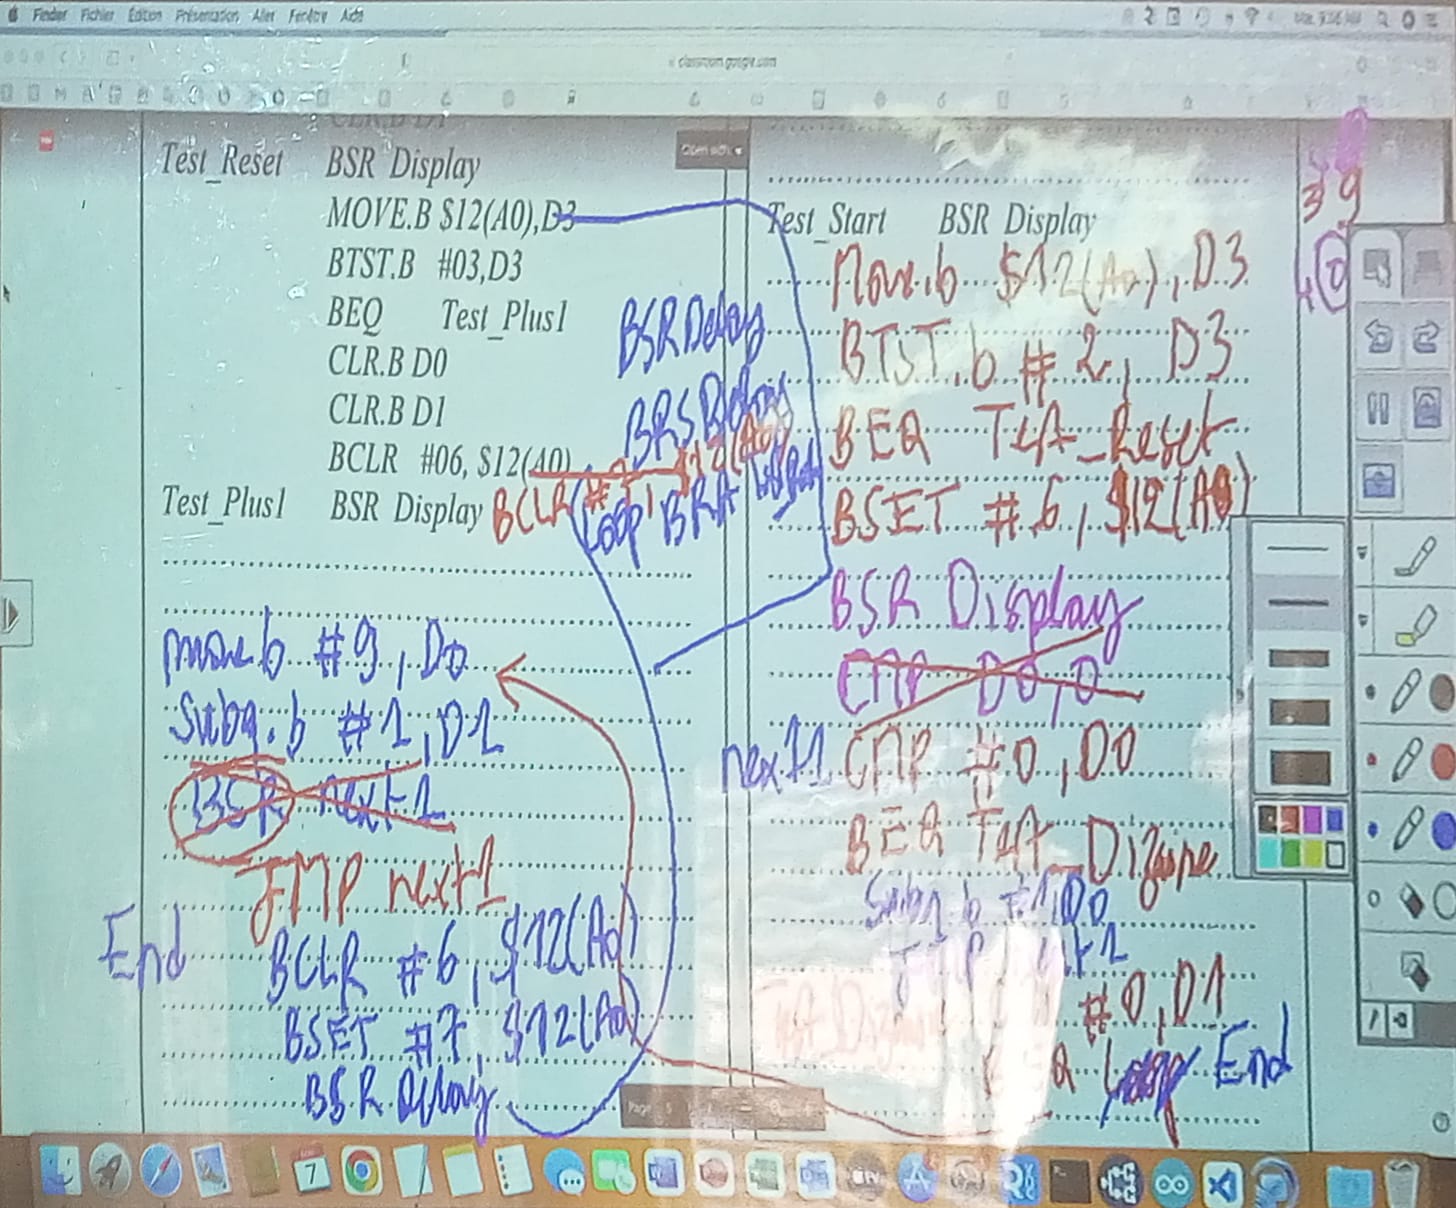 Finder Fichier Édition Présentation Aller Fenêtre Aide
classroom.google.com
CLR.B D1
Open with
Test_Reset BSR Display
MOVE.B $12(A0),D3
BTST.B #03,D3
BEQ Test_Plus1
CLR.B D0
CLR.B D1
BCLR #06, $12(A0)
Test_Plus1 BSR Display
BCLR # $12(A0)
BSR Delay
BRS Delay
Loop BRA
move.b #9, D0
Subq.b #1, D1
BSR next1
JMP next1
End BCLR #6, $12(A0)
BSET #7, $12(A0)
BSR Delay
Page
Test_Start BSR Display
Move.b $12(A0), D3
BTST.b #2, D3
BEQ Test_Reset
BSET #6, $12(A0)
BSR Display
CMP D0,0
next1 CMP #0, D0
BEQ Test_Dizaine
Subq.b #1 D0
#0, D1
End
39
40
7